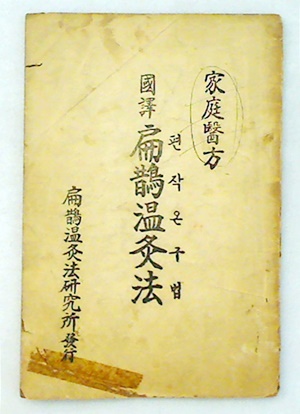 家庭醫方
國譯 扁鵲温灸法
편작온구법
扁鵲温灸法研究所發行